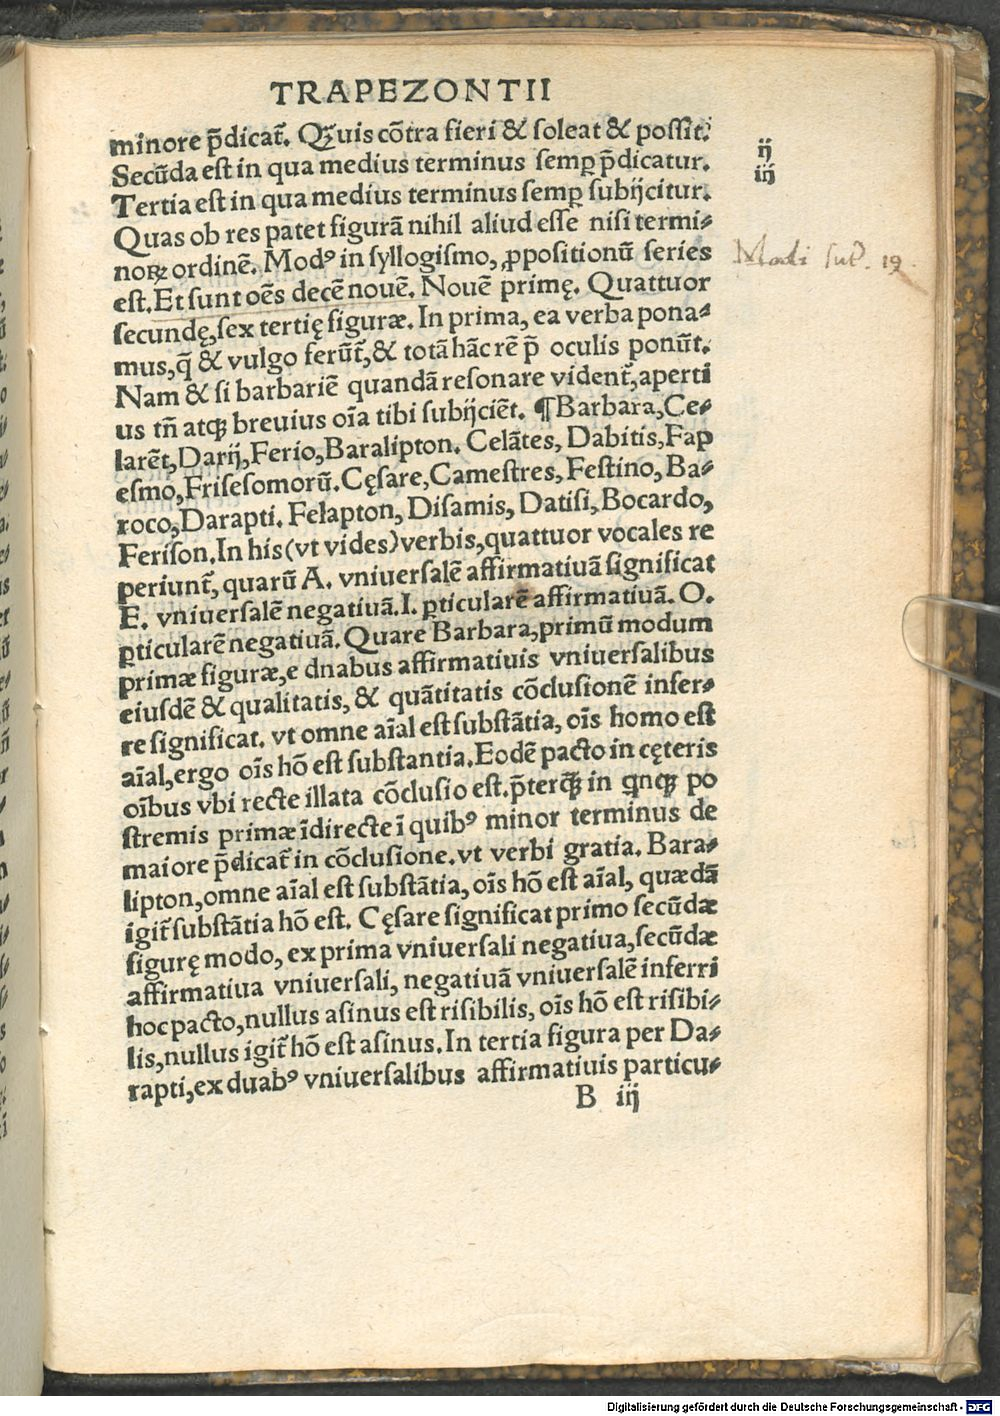 TRAPEZONTII
minore p̄dicat᷑. Qꝫuis cōtra fieri & ſoleat & poſſit.
Secūda eſt in qua medius terminus ſemꝑ p̄dicatur. ij
Tertia eſt in qua medius terminus ſemꝑ ſubijcitur. iij
Quas ob res patet figurā nihil aliud eſſe niſi termi⸗
noꝝ ordinē. Modꝰ in ſyllogiſmo, ꝓpoſitionū ſeries
eſt. Et ſunt oēs decē nouē. Nouē primę. Quattuor
ſecundę, ſex tertię figuræ. In prima, ea verba pona⸗
mus, q̄ & vulgo ferūt᷑, & totā hāc rē p̄ oculis ponūt.
Nam & ſi barbariē quandā reſonare vident᷑, aperti
us tn̄ atqꝫ breuius oīa tibi ſubijciēt. ¶Barbara, Ce⸗
larēt, Darij, Ferio, Baralipton. Celātes, Dabitis, Fap
eſmo, Friſeſomorū. Cęſare, Cameſtres, Feſtino, Ba⸗
roco, Darapti. Felapton, Diſamis, Datiſi, Bocardo,
Feriſon. In his (vt vides) verbis, quattuor vocales re
periunt᷑, quarū A. vniuerſalē affirmatiuā ſignificat
E. vniuerſalē negatiuā. I. ꝑticularē affirmatiuā. O.
ꝑticularē negatiuā. Quare Barbara, primū modum
primæ figuræ, e dnabus affirmatiuis vniuerſalibus
eiuſdē & qualitatis, & quātitatis cōcluſionē infer⸗
re ſignificat. vt omne aīal eſt ſubſtātia, oīs homo eſt
aīal, ergo oīs hō eſt ſubſtantia. Eodē pacto in cęteris
oībus vbi recte illata cōcluſio eſt. p̄terqꝫ̄ in qnqꝫ po
ſtremis primæ īdirecte ī quibꝰ minor terminus de
maiore p̄dicat᷑ in cōcluſione. vt verbi gratia. Bara⸗
lipton, omne aīal eſt ſubſtātia, oīs hō eſt aīal, quædā
igit᷑ ſubſtātia hō eſt. Cęſare ſignificat primo ſecūdæ
figurę modo, ex prima vniuerſali negatiua, ſecūdæ
affirmatiua vniuerſali, negatiuā vniuerſalē inferri
hoc pacto, nullus aſinus eſt riſibilis, oīs hō eſt riſibi⸗
lis, nullus igit᷑ hō eſt aſinus. In tertia figura per Da⸗
rapti, ex duabꝰ vniuerſalibus affirmatiuis particu⸗
B iij
Modi 19.
Digitalisierung gefördert durch die Deutsche Forschungsgemeinschaft - DFG